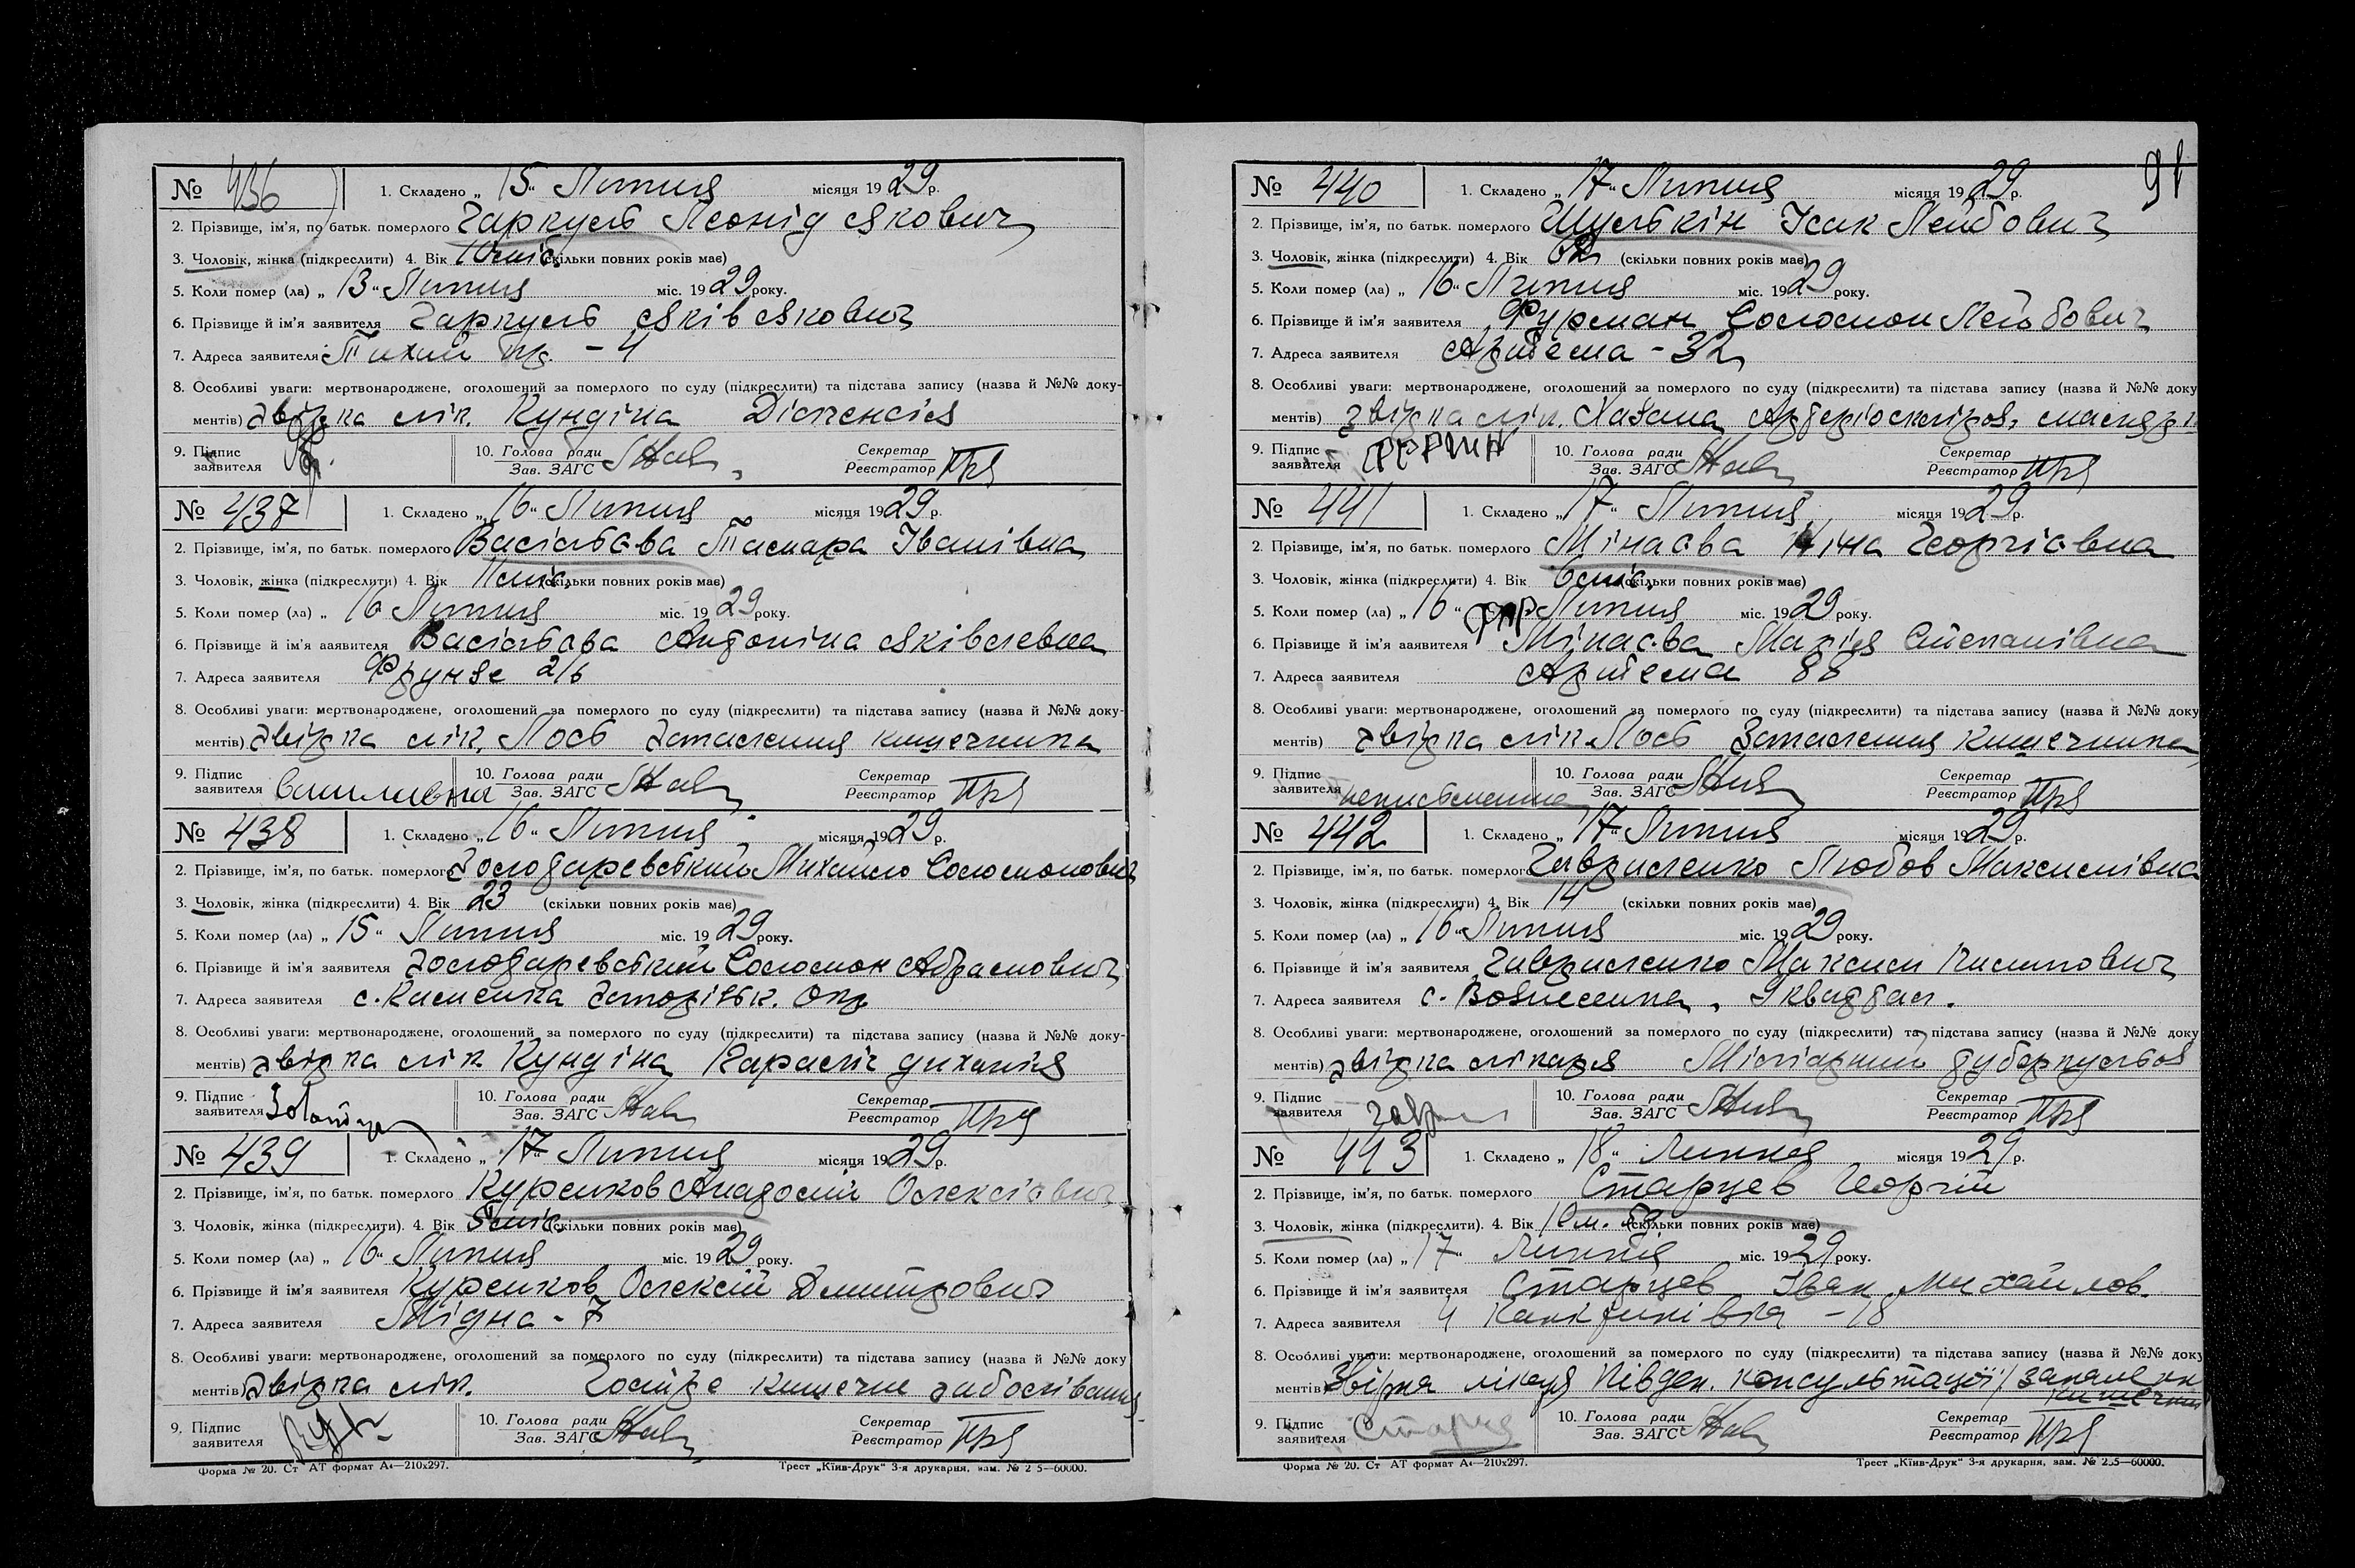 № 436 1. Складено „15“ Липня місяця 1929 р.
2. Прізвище, ім'я, по батьк. померлого Гаркуль Леонід Якович
3. Чоловік, жінка (підкреслити) 4. Вік 10 міс. (скільки повних років має)
5. Коли помер (ла) „13“ Липня міс. 1929 року.
6. Прізвище й ім'я заявителя Гаркуль Яків Якович
7. Адреса заявителя Тихий - 4
8. Особливі уваги: мертвонароджене, оголошений за померлого по суду (підкреслити) та підстава запису (назва й №№ доку-
ментів) звірка лік. Кундіна Діспенсія
9. Підпис заявителя 10. Голова ради Зав. ЗАГС Секретар Реєстратор
№ 437 1. Складено „16“ Липня місяця 1929 р.
2. Прізвище, ім'я, по батьк. померлого Васільєва Тамара Іванівна
3. Чоловік, жінка (підкреслити) 4. Вік 11 міс. (скільки повних років має)
5. Коли помер (ла) „16 Липня міс. 1929 року.
6. Прізвище й ім'я заявителя Васільєва Антоніна Яківлевна
7. Адреса заявителя Фрунзе 2/6
8. Особливі уваги: мертвонароджене, оголошений за померлого по суду (підкреслити) та підстава запису (назва й №№ доку-
ментів) звірка лік. Лось Запалення кишечника
9. Підпис заявителя 10. Голова ради Зав. ЗАГС Секретар Реєстратор
№ 438 1. Складено „16“ Липня місяця 1929 р.
2. Прізвище, ім'я, по батьк. померлого Золотаревський Михайло Соломонович
3. Чоловік, жінка (підкреслити) 4. Вік 23 (скільки повних років має)
5. Коли помер (ла) „15“ Липня міс. 1929 року.
6. Прізвище й ім'я заявителя Золотаревський Соломон Абрамович
7. Адреса заявителя с. Каменка Запоріжьк. Окр
8. Особливі уваги: мертвонароджене, оголошений за померлого по суду (підкреслити) та підстава запису (назва й №№ доку-
ментів) звірка лік Кундіна Параліч дихання
9. Підпис заявителя 10. Голова ради Зав. ЗАГС Секретар Реєстратор
№ 439 1. Складено „17“ Липня місяця 1929 р.
2. Прізвище, ім'я, по батьк. померлого Куренков Анатолій Олексієвич
3. Чоловік, жінка (підкреслити). 4. Вік міс. (скільки повних років має)
5. Коли помер (ла) „16“ Липня міс. 1929 року.
6. Прізвище й ім'я заявителя Куренков Олексій Дмитрович
7. Адреса заявителя Мідна - 7
8. Особливі уваги: мертвонароджене, оголошений за померлого по суду (підкреслити) та підстава запису (назва й №№ доку
ментів) звірка лік. Гостре кишечне заболівання
9. Підпис заявителя 10. Голова ради Зав. ЗАГС Секретар Реєстратор
Форма № 20. Ст АТ формат А4—210х297. Трест „Київ-Друк“ 3-я друкарня, зам. № 2 5—60000.
91
№ 440 1. Складено „17“ Липня місяця 1929 р.
2. Прізвище, ім'я, по батьк. померлого Шулькін Ісак Лейбович
3. Чоловік, жінка (підкреслити) 4. Вік 62 (скільки повних років має)
5. Коли помер (ла) „16“ Липня міс. 1929 року.
6. Прізвище й ім'я заявителя Фурман Соломон Лейбович
7. Адреса заявителя Артема - 32
8. Особливі уваги: мертвонароджене, оголошений за померлого по суду (підкреслити) та підстава запису (назва й №№ доку
ментів) звірка лік. Хазана Артеріосклероз,
9. Підпис заявителя 10. Голова ради Зав. ЗАГС Секретар Реєстратор
№ 441 1. Складено „17“ Липня місяця 1929 р.
2. Прізвище, ім'я, по батьк. померлого Мінаєва Ніна Георгієвна
3. Чоловік, жінка (підкреслити) 4. Вік 6 міс. (скільки повних років має)
5. Коли помер (ла) „16“ Липня міс. 1929 року.
6. Прізвище й ім'я заявителя Мінаєва Марія Степанівна
7. Адреса заявителя Артема 88
8. Особливі уваги: мертвонароджене, оголошений за померлого по суду (підкреслити) та підстава запису (назва й №№ доку
ментів) звірка лік Лось Запалення кишечника
9. Підпис заявителя неписьменна 10. Голова ради Зав. ЗАГС Секретар Реєстратор
№ 442 1. Складено „17“ Липня місяця 1929 р.
2. Прізвище, ім'я, по батьк. померлого Гавриленко Любов Максимівна
3. Чоловік, жінка (підкреслити) 4. Вік 14 (скільки повних років має)
5. Коли помер (ла) „16“ Липня міс. 1929 року.
6. Прізвище й ім'я заявителя Гавриленко Максим
7. Адреса заявителя с. Вознесенка,
8. Особливі уваги: мертвонароджене, оголошений за померлого по суду (підкреслити) та підстава запису (назва й №№ доку
ментів) звірка лікаря Міліарний туберкульоз
9. Підпис заявителя 10. Голова ради Зав. ЗАГС Секретар Реєстратор
№ 443 1. Складено „18“ Липня місяця 1929 р.
2. Прізвище, ім'я, по батьк. померлого Старцев Георгій
3. Чоловік, жінка (підкреслити). 4. Вік 10 м. (скільки повних років має)
5. Коли помер (ла) „17“ Липня міс. 1929 року.
6. Прізвище й ім'я заявителя Старцев Іван Михайлов.
7. Адреса заявителя - 18
8. Особливі уваги: мертвонароджене, оголошений за померлого по суду (підкреслити) та підстава запису (назва й №№ доку
ментів) Звірка лікаря Півден. консультації/ запален
кишечник
9. Підпис заявителя 10. Голова ради Зав. ЗАГС Секретар Реєстратор
Форма № 20. Ст АТ формат А4—210х297. Трест „Київ-Друк“ 3-я друкарня, зам. № 235—60000.